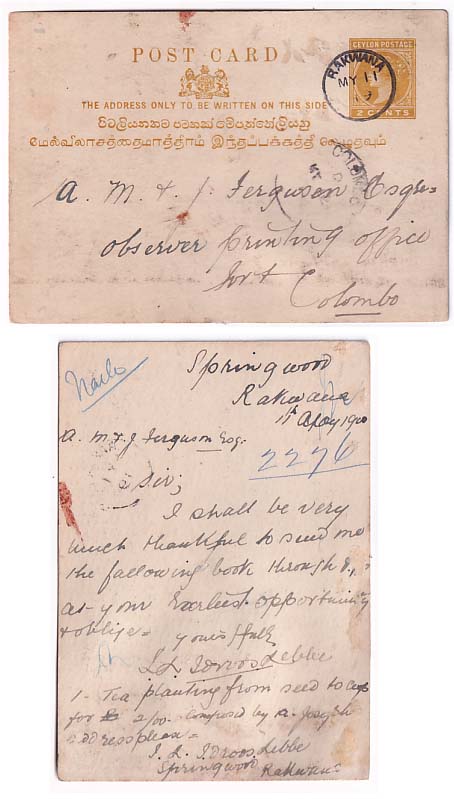 POST CARD
CEYLON POSTAGE
2 CENTS
RAKWANA
MY 11
THE ADDRESS ONLY TO BE WRITTEN ON THIS SIDE
மேல்விலாசத்தைமாத்திரம் இந்தப்பக்கத்தி லெழுதவும்
COLOMBO
A. M. & J. Ferguson Esqre
Observer printing office
Fort
Colombo
Springwood
Rakwana
11th May 1900
2276
A. M & J Ferguson Esq.
Sir,
I shall be very
much thankful to send me
the following book through
at your Earliest opportunity
& oblige
yours
I. L. Idroos Lebbe
1 - Tea planting from seed to cup
for 2/00 composed by A. Joseph
address please
I. L. Idroos Lebbe
Springwood Rakwana